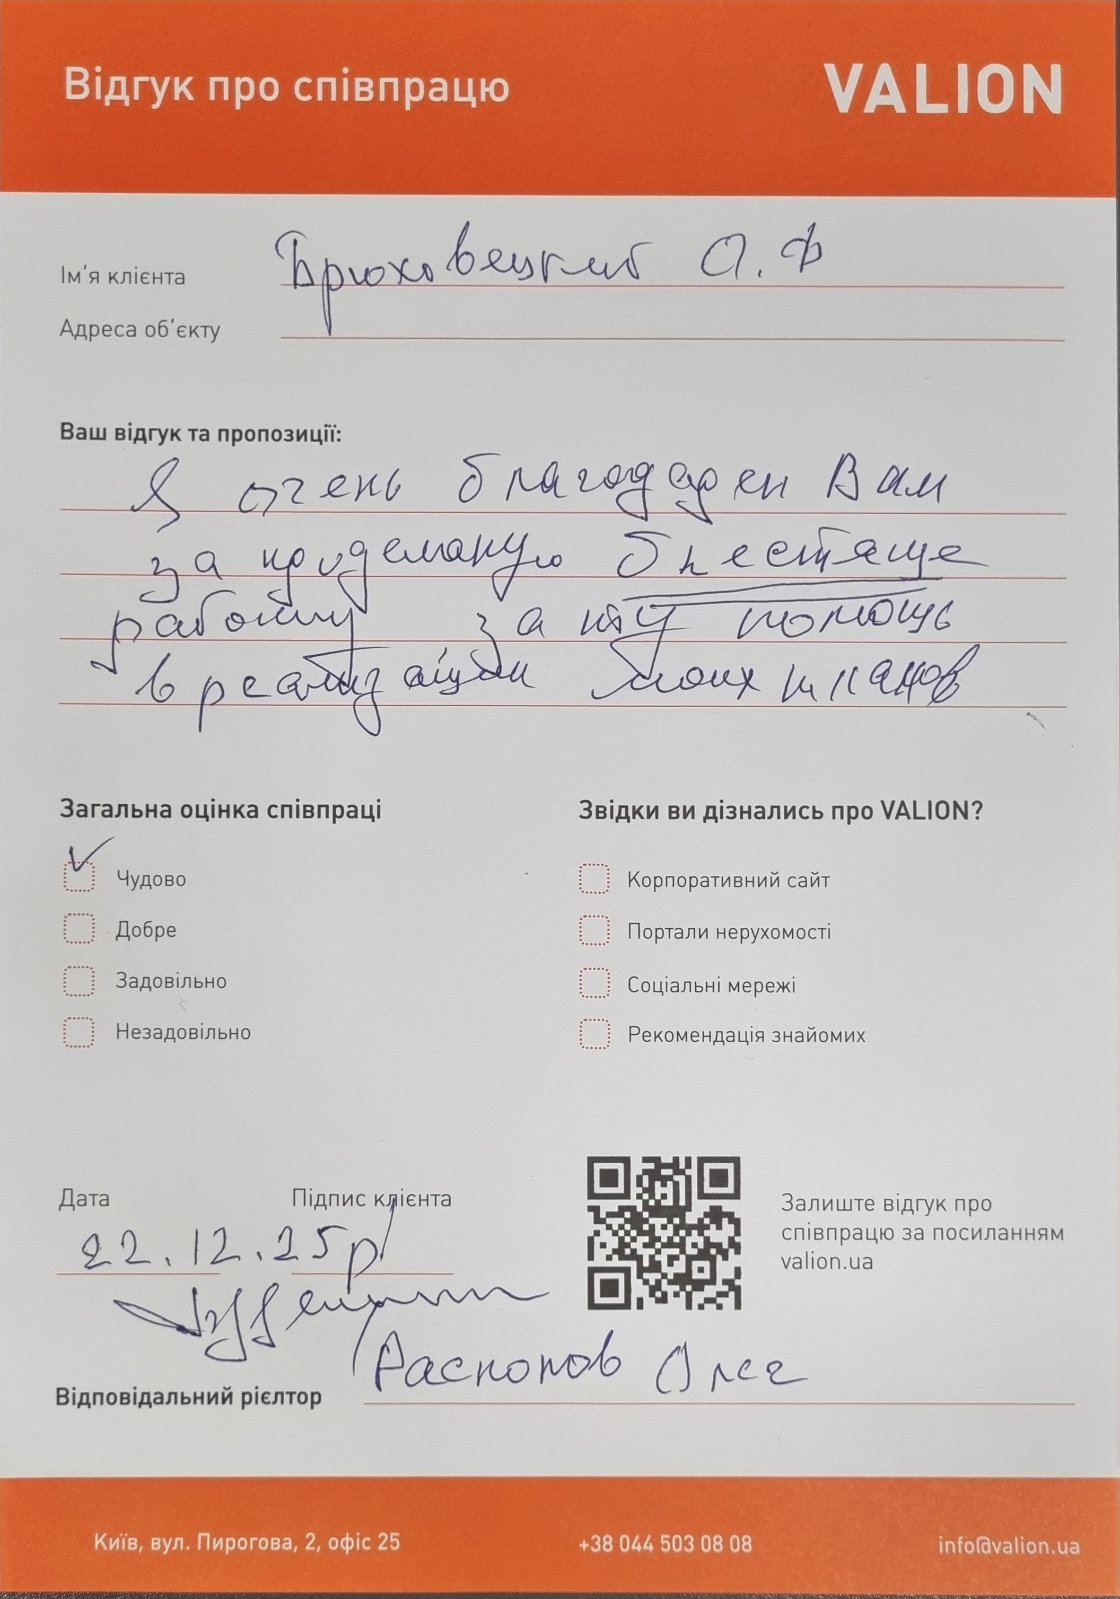 Відгук про співпрацю
VALION
Ім'я клієнта Брюховецкий О. Ф
Адреса об'єкту
Ваш відгук та пропозиції:
Я очень благодарен Вам
за проделаную блестяще
работу за ту помощь
в реализации моих планов
Загальна оцінка співпраці
Чудово
Добре
Задовільно
Незадовільно
Звідки ви дізнались про VALION?
Корпоративний сайт
Портали нерухомості
Соціальні мережі
Рекомендація знайомих
Дата
Підпис клієнта
22.12.25р
Залиште відгук про
співпрацю за посиланням
valion.ua
Відповідальний рієлтор Распопов Олег
Київ, вул. Пирогова, 2, офіс 25
+38 044 503 08 08
info@valion.ua